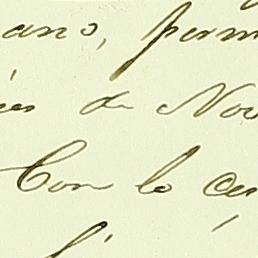 ano, perm
es de Nov
Con lo ce